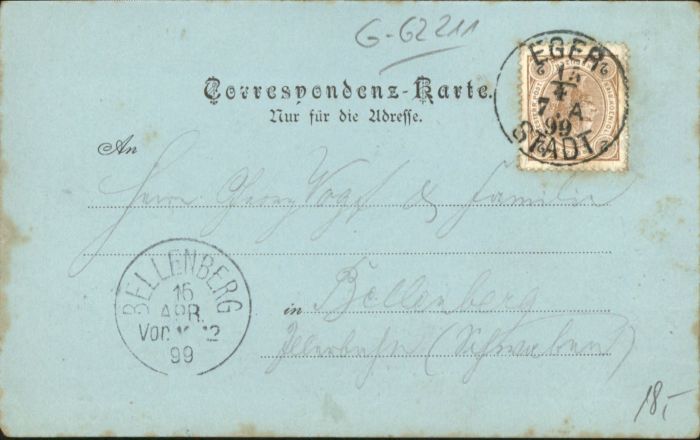 G-62211
Correspondenz-Karte.
Nur für die Adresse.
EGER
15
4
7 A
99
STADT
An
Herrn Georg Vogt & Familie
BELLENBERG
16
APR.
Vor. 12
99
in Bellenberg
Illerbahn (Schwaben)
18,-